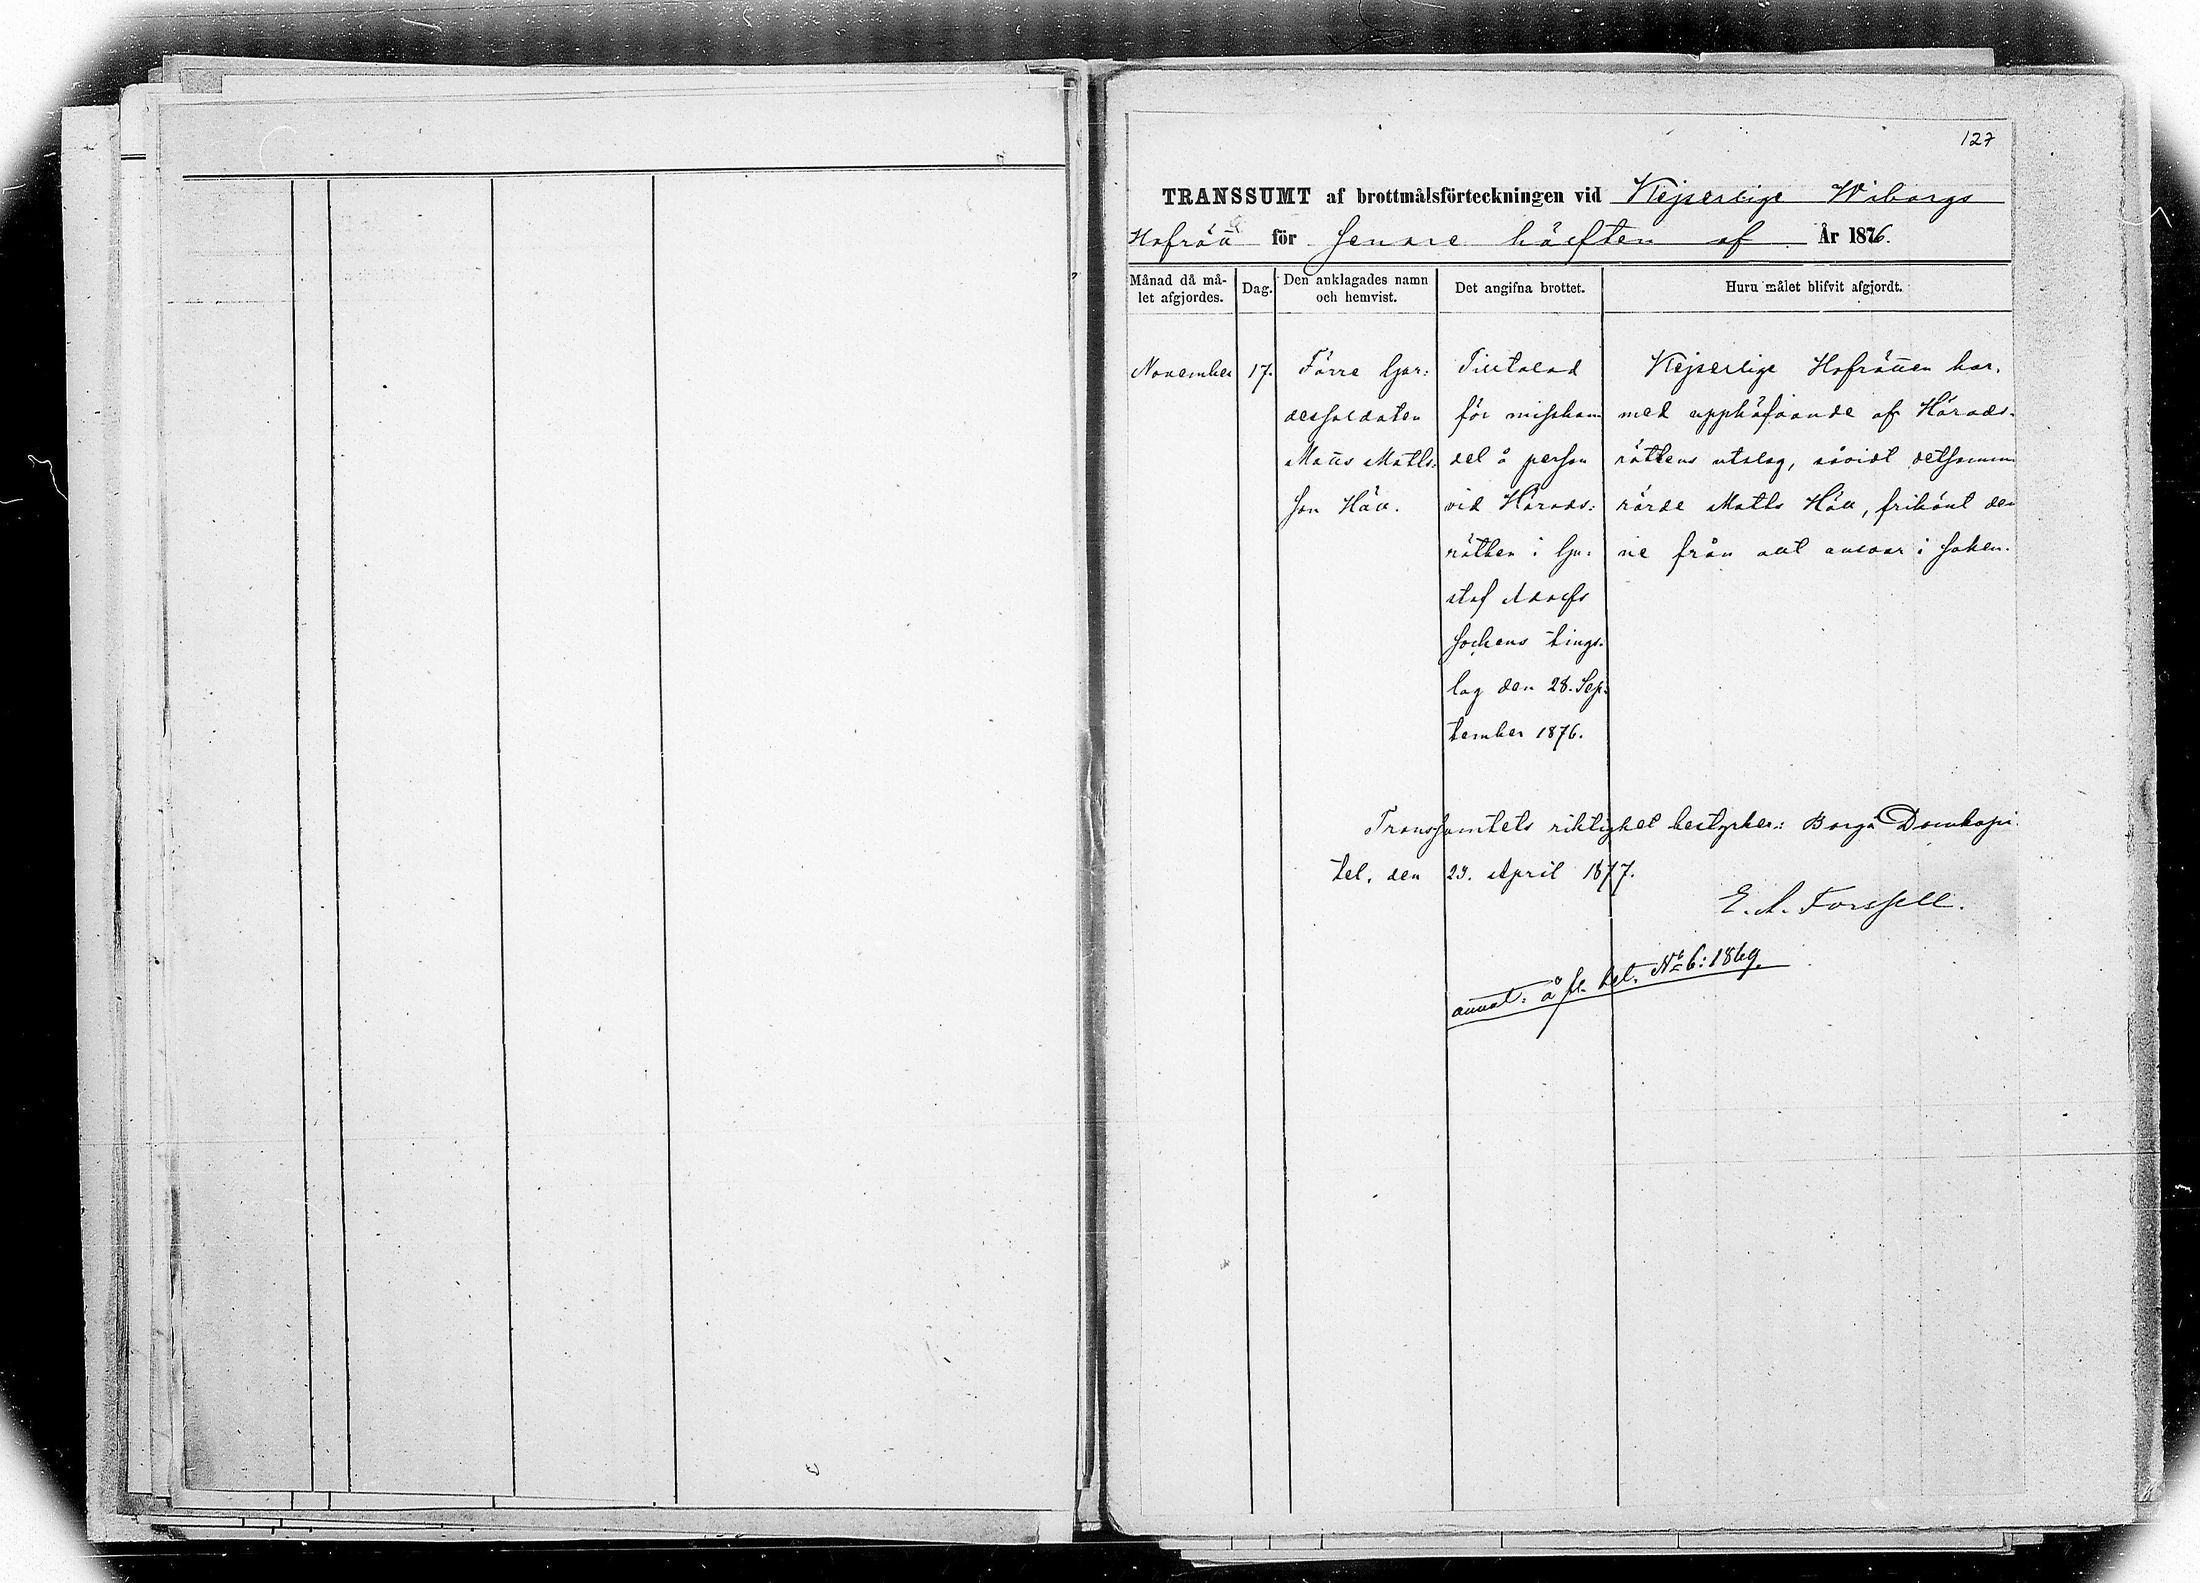 127
TRANSSUMT af brottmålsförteckningen vid Kejserlige Wiborgs
Hofrätt för senare hälften af År 1876.
Månad då må-
let afgjordes.
Dag.
Den anklagades namn
och hemvist.
Det angifna brottet.
Huru målet blifvit afgjordt.
November
17.
Förre Gar:
dessoldaten
Matts Matts:
son Häll.
Tilltalad
för misshan
del å person
vid Härads:
rätten i Gu:
staf Adolfs
sockens tings-
lag den 28. Sep:
tember 1876.
Kejserlige Hofrätten har,
med upphäfvande af Härads-
rättens utslag, såvidt detsamma
rörde Matts Häll, frikänt den
ne från allt ansvar i saken.
Transsumtets riktighet bestyrkes: Borgå Domkapi
tel, den 23. April 1877.
E. A. Forssell.
annot: å fr. bet. No 6: 1869.